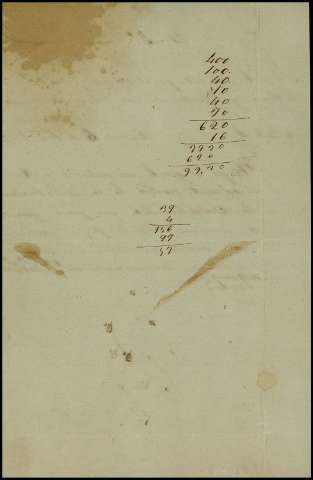 400
100.
40.
10
40
30
620
16
3720
620
99,20
39
4
156
99
57